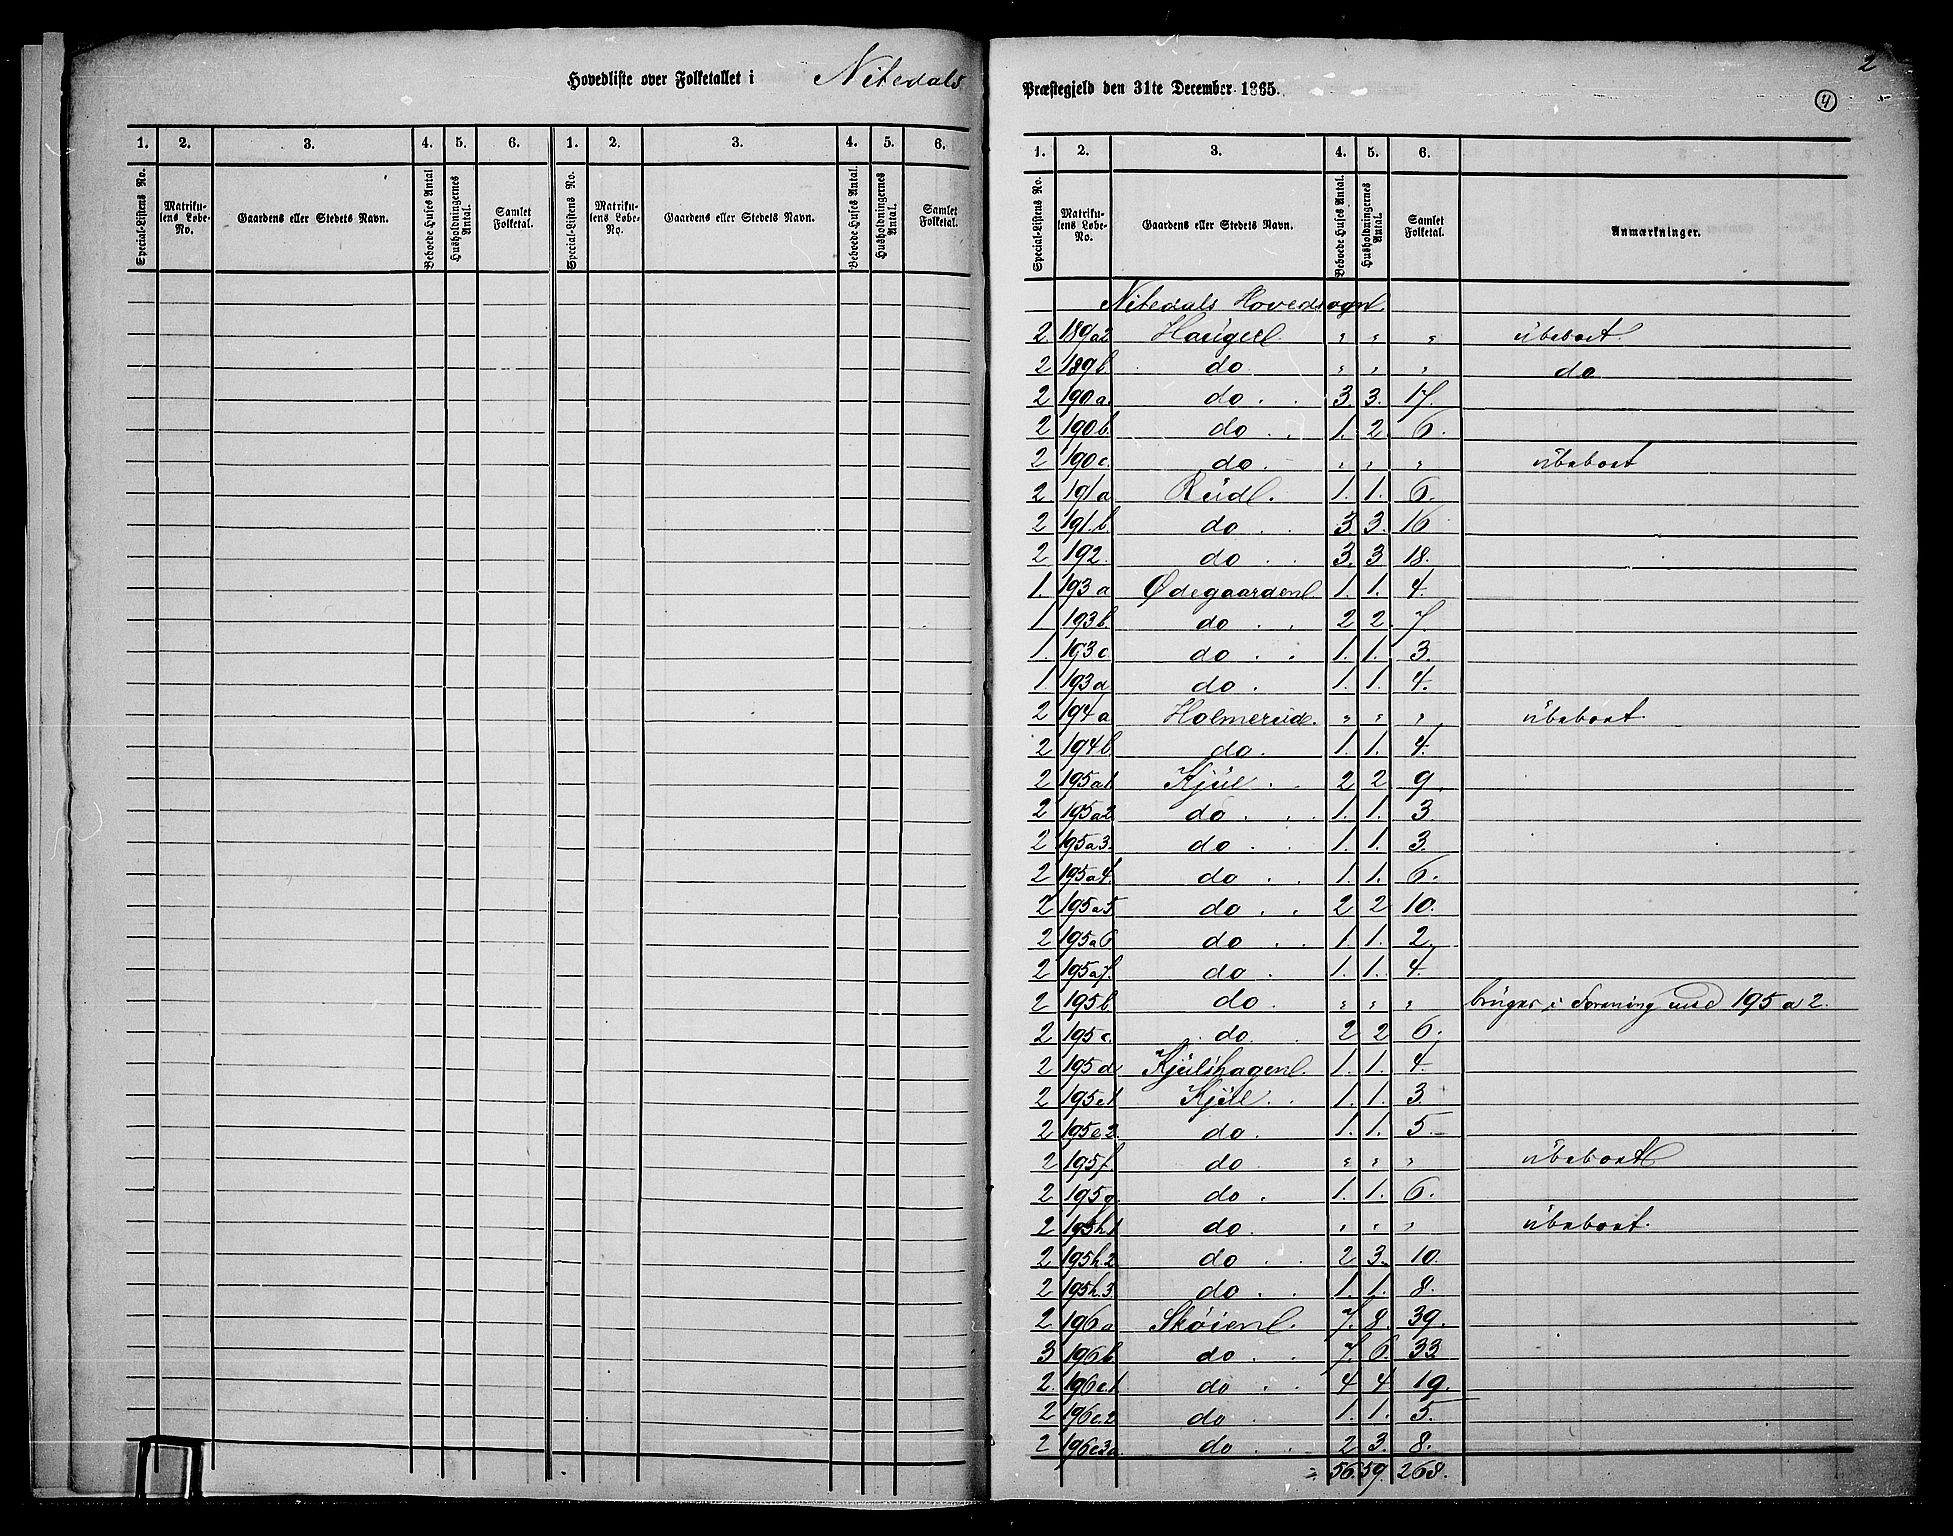 Hovedliste over Folketallet i Nitedals
1. 2. 3. 4. 5. 6. 1. 2. 3. 4. 5. 6.
Special-Listens No. Matrikulens Løbe-No. Gaardens eller Stedets Navn. Beboede Huses Antal Husholdningernes Antal. Samlet Folketal. Special-Listens No. Matrikulens Løbe-No. Gaardens eller Stedets Navn. Beboede Huses Antal. Husholdningernes Antal. Samlet Folketal.
2
4
Præstegjeld den 31te December 1865.
1. 2. 3. 4. 5. 6.
Special-Listens No. Matrikulens Løbe-No. Gaardens eller Stedets Navn. Beboede Huses Antal. Husholdningernes Antal. Samlet Folketal. Anmærkninger.
Nitedals Hovedsogn
2. 189a2 Hauger " " " übeboet.
2 189b do. " " " do
2 190a. do . . 3. 3. 17.
2 190b. do . . 1. 2. 6.
2 190c. do. " " " übeboet
2 191a Rüd. 1. 1. 6.
2 191.b do . . 3. 3. 16
2 192. do . . 3. 3 18.
1. 193a Ødegaarden 1. 1. 4.
1 193b. do . . 2 2. 7.
1. 193c. do . . 1. 1. 3.
1. 193d do . 1. 1. 4.
2 194a Holmerüd. " " " übeboet.
2 194b. do. 1. 1. 4.
2 195a1 Kjül . . 2 2 9.
2 195a2 do . . 1. 1. 3
2 195a3. do . . 1. 1. 3.
2 195a4. do . . 1. 1. 6.
2 195a5 do . . 2 2 10.
2 195a6 do . . 1. 1. 2.
2 195a7. do . 1. 1. 4.
2 195b. do . " " " brüges i Forening med 195 a 2.
2 195c. do. 2 2 6.
2 195d. Kjülshagen. 1. 1. 4.
2 195e1 Kjül . . 1. 1. 3
2 195e.2. do. 1. 1. 5
2 195f. do " " " übeboet
2 195g. do . 1. 1. 6.
2 195h1 do. " " " übeboet.
2 195h.2 do . . 2 3. 10.
2 195h.3. do . . 1. 1. 8.
2 196a Skøien. 7. 8. 39.
3 196b. do . . 7. 6. 33
2. 196c.1 do . . 4 4 19.
2 196c.2 do . 1. 1. 5.
2 196c3a do . . 2 3. 8.
= 56. 59. 268.